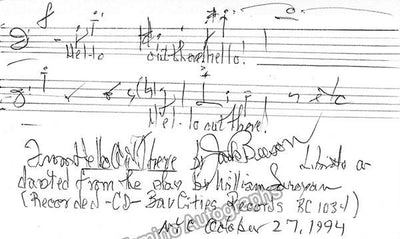 f
Hel-lo out there hello!
Hel-lo out there! etc
From Hello Out There by Jack Beeson Libretto a-
dapted from the play by William Saroyan
(Recorded -CD- Bay Cities Records BC 1031)
NYC October 27, 1994
Tamino Autographs